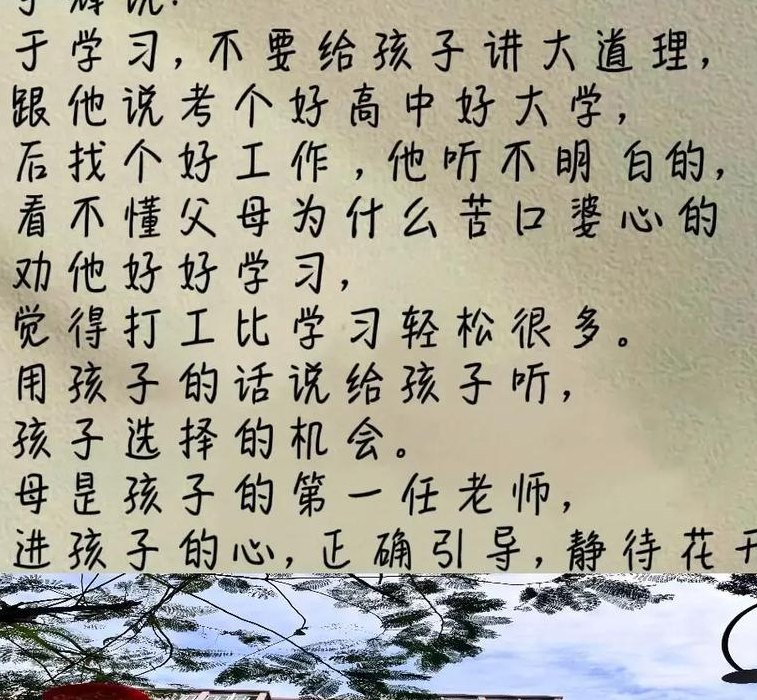 于学习，不要给孩子讲大道理，
跟他说考个好高中好大学，
后找个好工作，他听不明白的，
看不懂父母为什么苦口婆心的
劝他好好学习，
觉得打工比学习轻松很多。
用孩子的话说给孩子听，
孩子选择的机会。
母是孩子的第一任老师，
进孩子的心，正确引导，静待花开